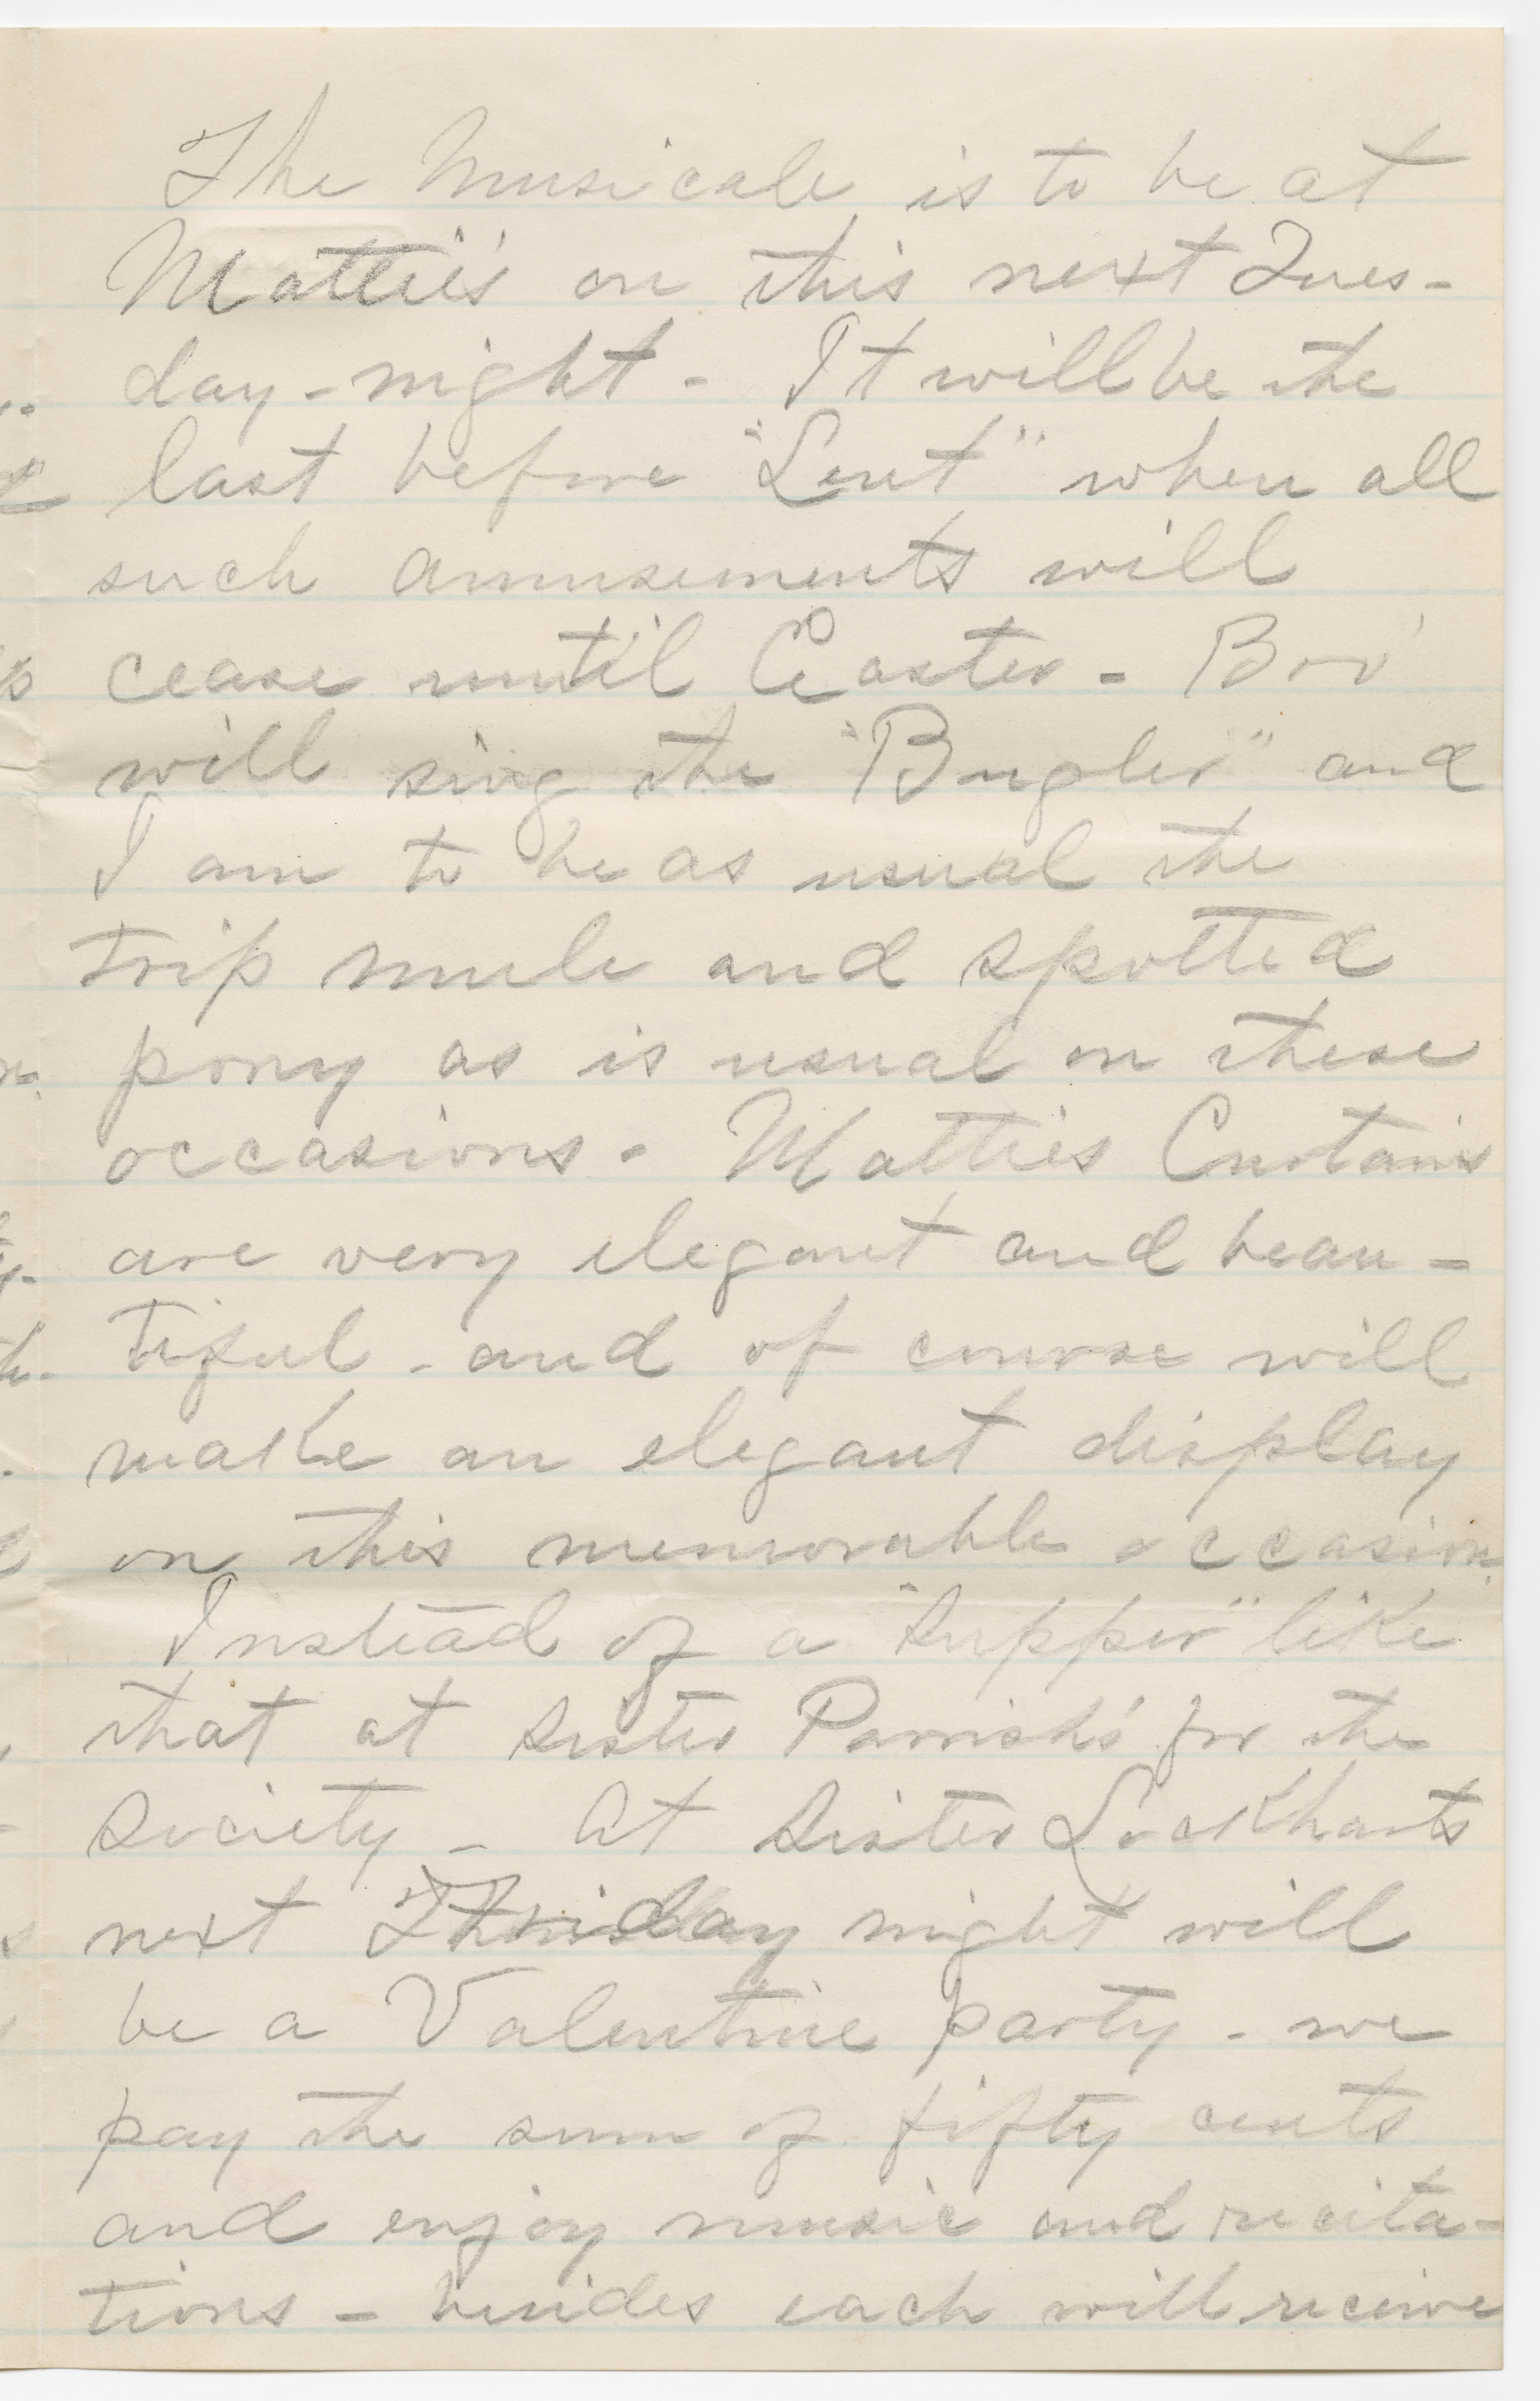 The Musicale is to be at
Mattie's on this next Tues-
day-night - It will be the
last before "Lent" when all
such amusements will
cease until Easter - Bro'
will sing the "Bugler" and
I am to be as usual the
trip mule and spotted
pony as is usual on these
occasions - Matties Curtains
are very elegant and beau-
tiful - and of course will
make an elegant display
on this memorable occasion.
Instead of a "Supper" like
that at Sister Parrish's for the
Society - At Sister Lockharts
next Friday night will
be a Valentine party - we
pay the sum of fifty cents
and enjoy music and recita-
tions - besides each will receive